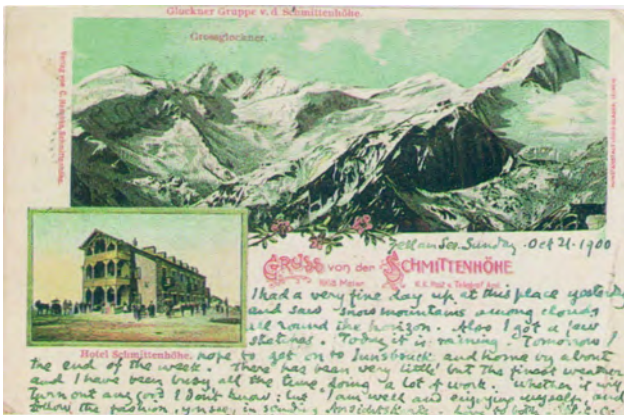 Gluckner Gruppe v. d. Schmittenhöhe.
Grossglockner.
Zell am See. Sunday. Oct 21. 1900
GRUSS von der SCHMITTENHÖHE.
1968 Meter. K.K. Post u. Telegraf Amt.
I had a very fine day up at this place yesterday
and saw snow mountains among clouds
all round the horizon. Also I got a few
sketches. Today it is raining. Tomorrow I
Hotel Schmittenhöhe.
hope to get on to Innsbruck and home by about
the end of the week. There has been very little but the finest weather
and I have been busy all the time, doing a lot of work. Whether it will
turn out any good I don't know; but I am well and enjoying myself, and
follow the fashion, you see, in sending Ansichtskarte.